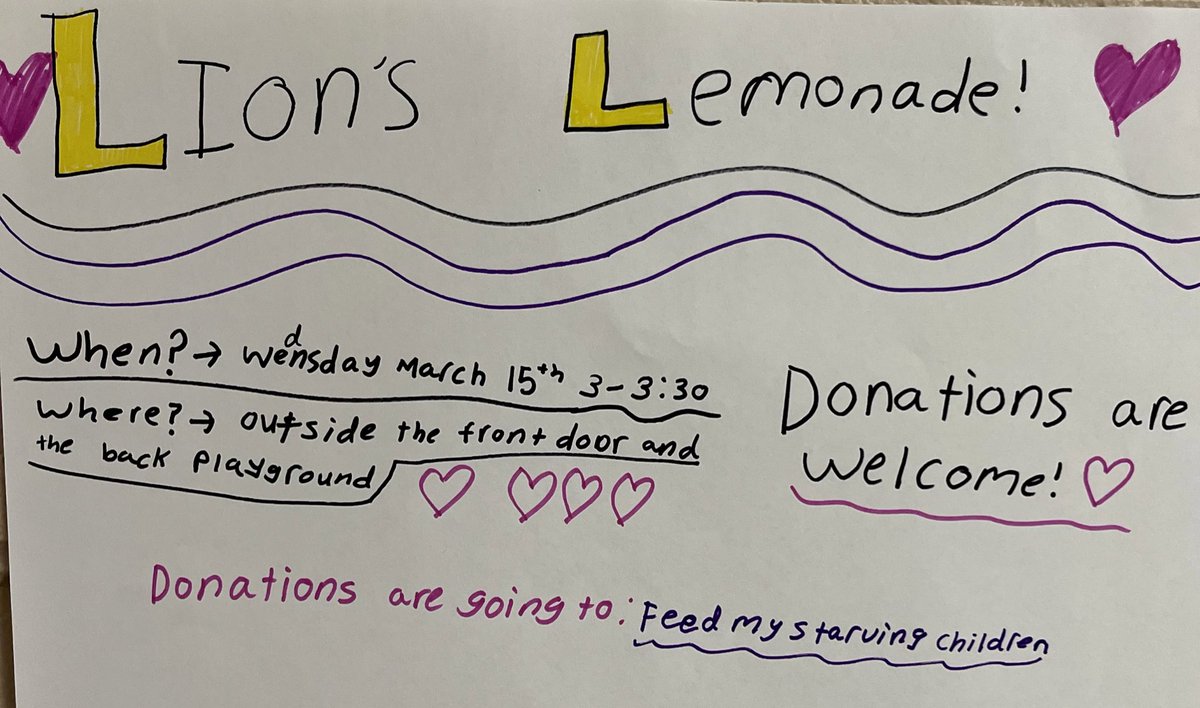 LIon's Lemonade!
When? → Wednsday March 15th 3-3:30
Where? → outside the front door and
the back playground
Donations are
welcome!
Donations are going to: Feed my starving children